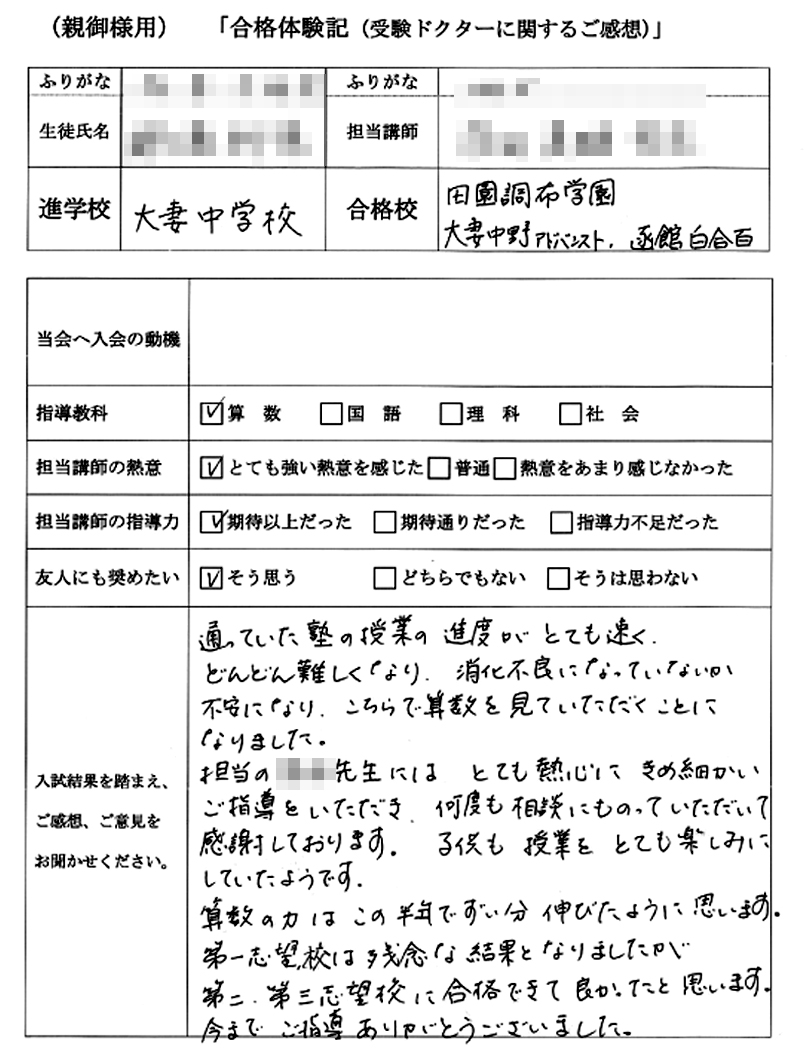 （親御様用）　「合格体験記（受験ドクターに関するご感想）」
ふりがな　ふりがな
生徒氏名　担当講師
進学校　大妻中学校　合格校　田園調布学園
大妻中野アドバンスト，函館白合百
当会へ入会の動機
指導教科　☑算　数　☐国　語　☐理　科　☐社　会
担当講師の熱意　☑とても強い熱意を感じた☐普通☐熱意をあまり感じなかった
担当講師の指導力　☑期待以上だった　☐期待通りだった　☐指導力不足だった
友人にも奨めたい　☑そう思う　☐どちらでもない　☐そうは思わない
入試結果を踏まえ、
ご感想、ご意見を
お聞かせください。
通っていた塾の授業の進度がとても速く、
どんどん難しくなり、消化不良になっていないか
不安になり、こちらで算数を見ていただくことに
なりました。
担当の　先生には とても熱心に きめ細かい
ご指導をいただき、何度も相談にものっていただいて
感謝しております。 子供も 授業を とても楽しみに
していたようです。
算数の力は この半年でずい分 伸びたように思います。
第一志望校は残念な結果となりましたが
第二、第三志望校に合格できて良かったと思います。
今まで ご指導 ありがとうございました。